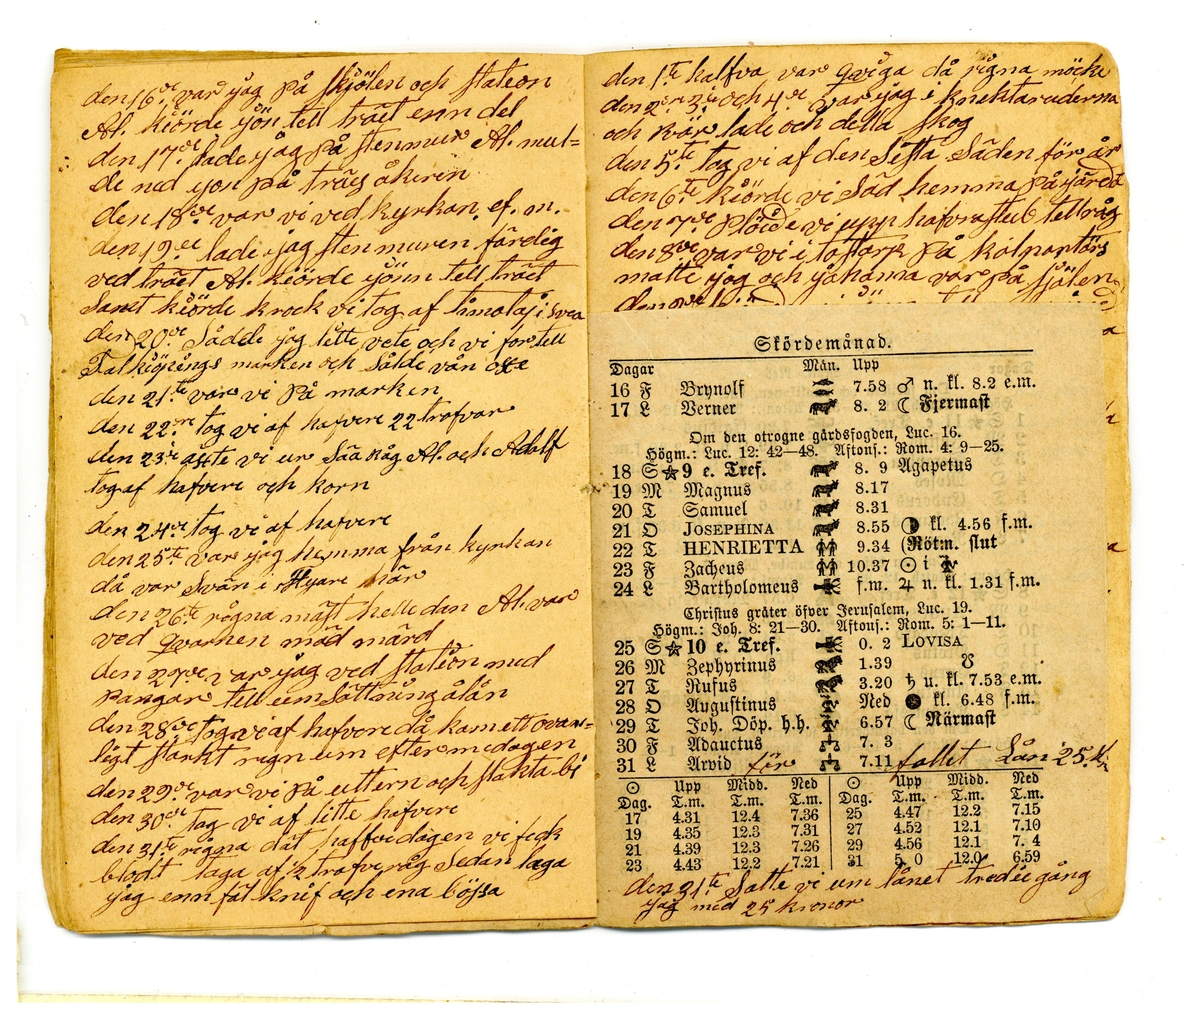 den 16de var jag på skjölen och station
Al. kiörde jön tell träet enn del
den 17de lade jag på stenmur Al. mul=
de ned jon på träes åkeren
den 18de var vi ved kyrkan ef. m.
den 19de lade jag stenmuren färdig
ved träet Al. kiörde jönn tell träet
samt kiörde krock vi tog af
den 20de Sådde jag litte vete och vi for tell
Falkiöpings marken och Sålde vån oxe
den 21te var vi på marken
den 22re tog vi af hafvere 22 trafvar
den 23e åxte vi ur Såå Råg Al. och Adolf
tog af hafvere och korn
den 24de tog vi af hafvere
den 25te var jag hemma från kyrkan
då var Svän i här
den 26te rögna mäst helle dan Al. var
ved qvarnen mäd märd
den 27de var jag ved station med
pangar tell em Sättning å lån
den 28de tog vi af hafvere då kom ett ovan=
ligt starkt regn um eftermedagen
den 29de var vi på uttern och slakta bi
den 30de tag vi af litte hafvere
den 31te rögna dåt haffvedagen vi feck
blodt taga af ½ trafve råg Sedan laga
jag enn fål knif och ena bössa
den 1te halfva var qvåga då rigna möcke
den 2er 3de och 4de var jag i knektaruderna
och kör lade och della skog
den 5te tog vi af den Sista Säden för år
den 6te kiörde vi Säd hemma på
den 7de plöide vi upp hafrastub tell råg
den 8de var vi i på kalportörs
matte jag och johanna var på sjölen
Skördemånad.
Dagar Mån. Upp
16 F Brynolf 7.58 ♂ n. kl. 8.2 e.m.
17 L Verner 8. 2 ☾ Fjermast
Om den otrogne gårdsfogden, Luc. 16.
Högm.: Luc. 12: 42—48. Aftons.: Rom. 4: 9—25.
18 S ★ 9 e. Tref. 8. 9 Agapetus
19 M Magnus 8.17
20 T Samuel 8.31
21 O JOSEPHINA 8.55 ◑ kl. 4.56 f.m.
22 T HENRIETTA 9.34 (Rötm. slut
23 F Zacheus 10.37 ☉ i ♍
24 L Bartholomeus f.m. ♃ n. kl. 1.31 f.m.
Christus gråter öfver Jerusalem, Luc. 19.
Högm.: Joh. 8: 21—30. Aftons.: Rom. 5: 1—11.
25 S ★ 10 e. Tref. 0. 2 LOVISA
26 M Zephyrinus 1.39 ☋
27 T Rufus 3.20 ♄ u. kl. 7.53 e.m.
28 O Augustinus Ned ● kl. 6.48 f.m.
29 T Joh. Döp. h.h. 6.57 ☾ Närmast
30 F Adauctus 7. 3
31 L Arvid för 7.11 fallet Lån 25 K
☉ Upp Midd. Ned ☉ Upp Midd. Ned
Dag. T.m. T.m. T.m. Dag. T.m. T.m. T.m.
17 4.31 12.4 7.36 25 4.47 12.2 7.15
19 4.35 12.3 7.31 27 4.52 12.1 7.10
21 4.39 12.3 7.26 29 4.56 12.1 7. 4
23 4.43 12.2 7.21 31 5. 0 12.0 6.59
den 21te Satte vi um lånet tredie gång
jag med 25 kronor